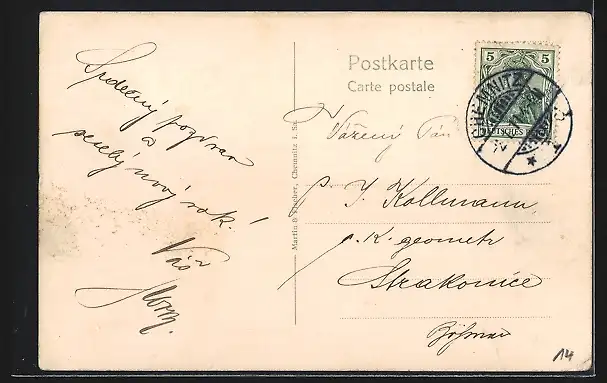 Srdečný pozdrav
a
veselý nový rok!
Váš
Postkarte
Carte postale
Martin & Krieger, Chemnitz i. Sa.
5 5
DEUTSCHES
CHEMNITZ
Vážený Pán
p. J. Kollmann,
c. K. geometr
Strakonice
Böhmen
14